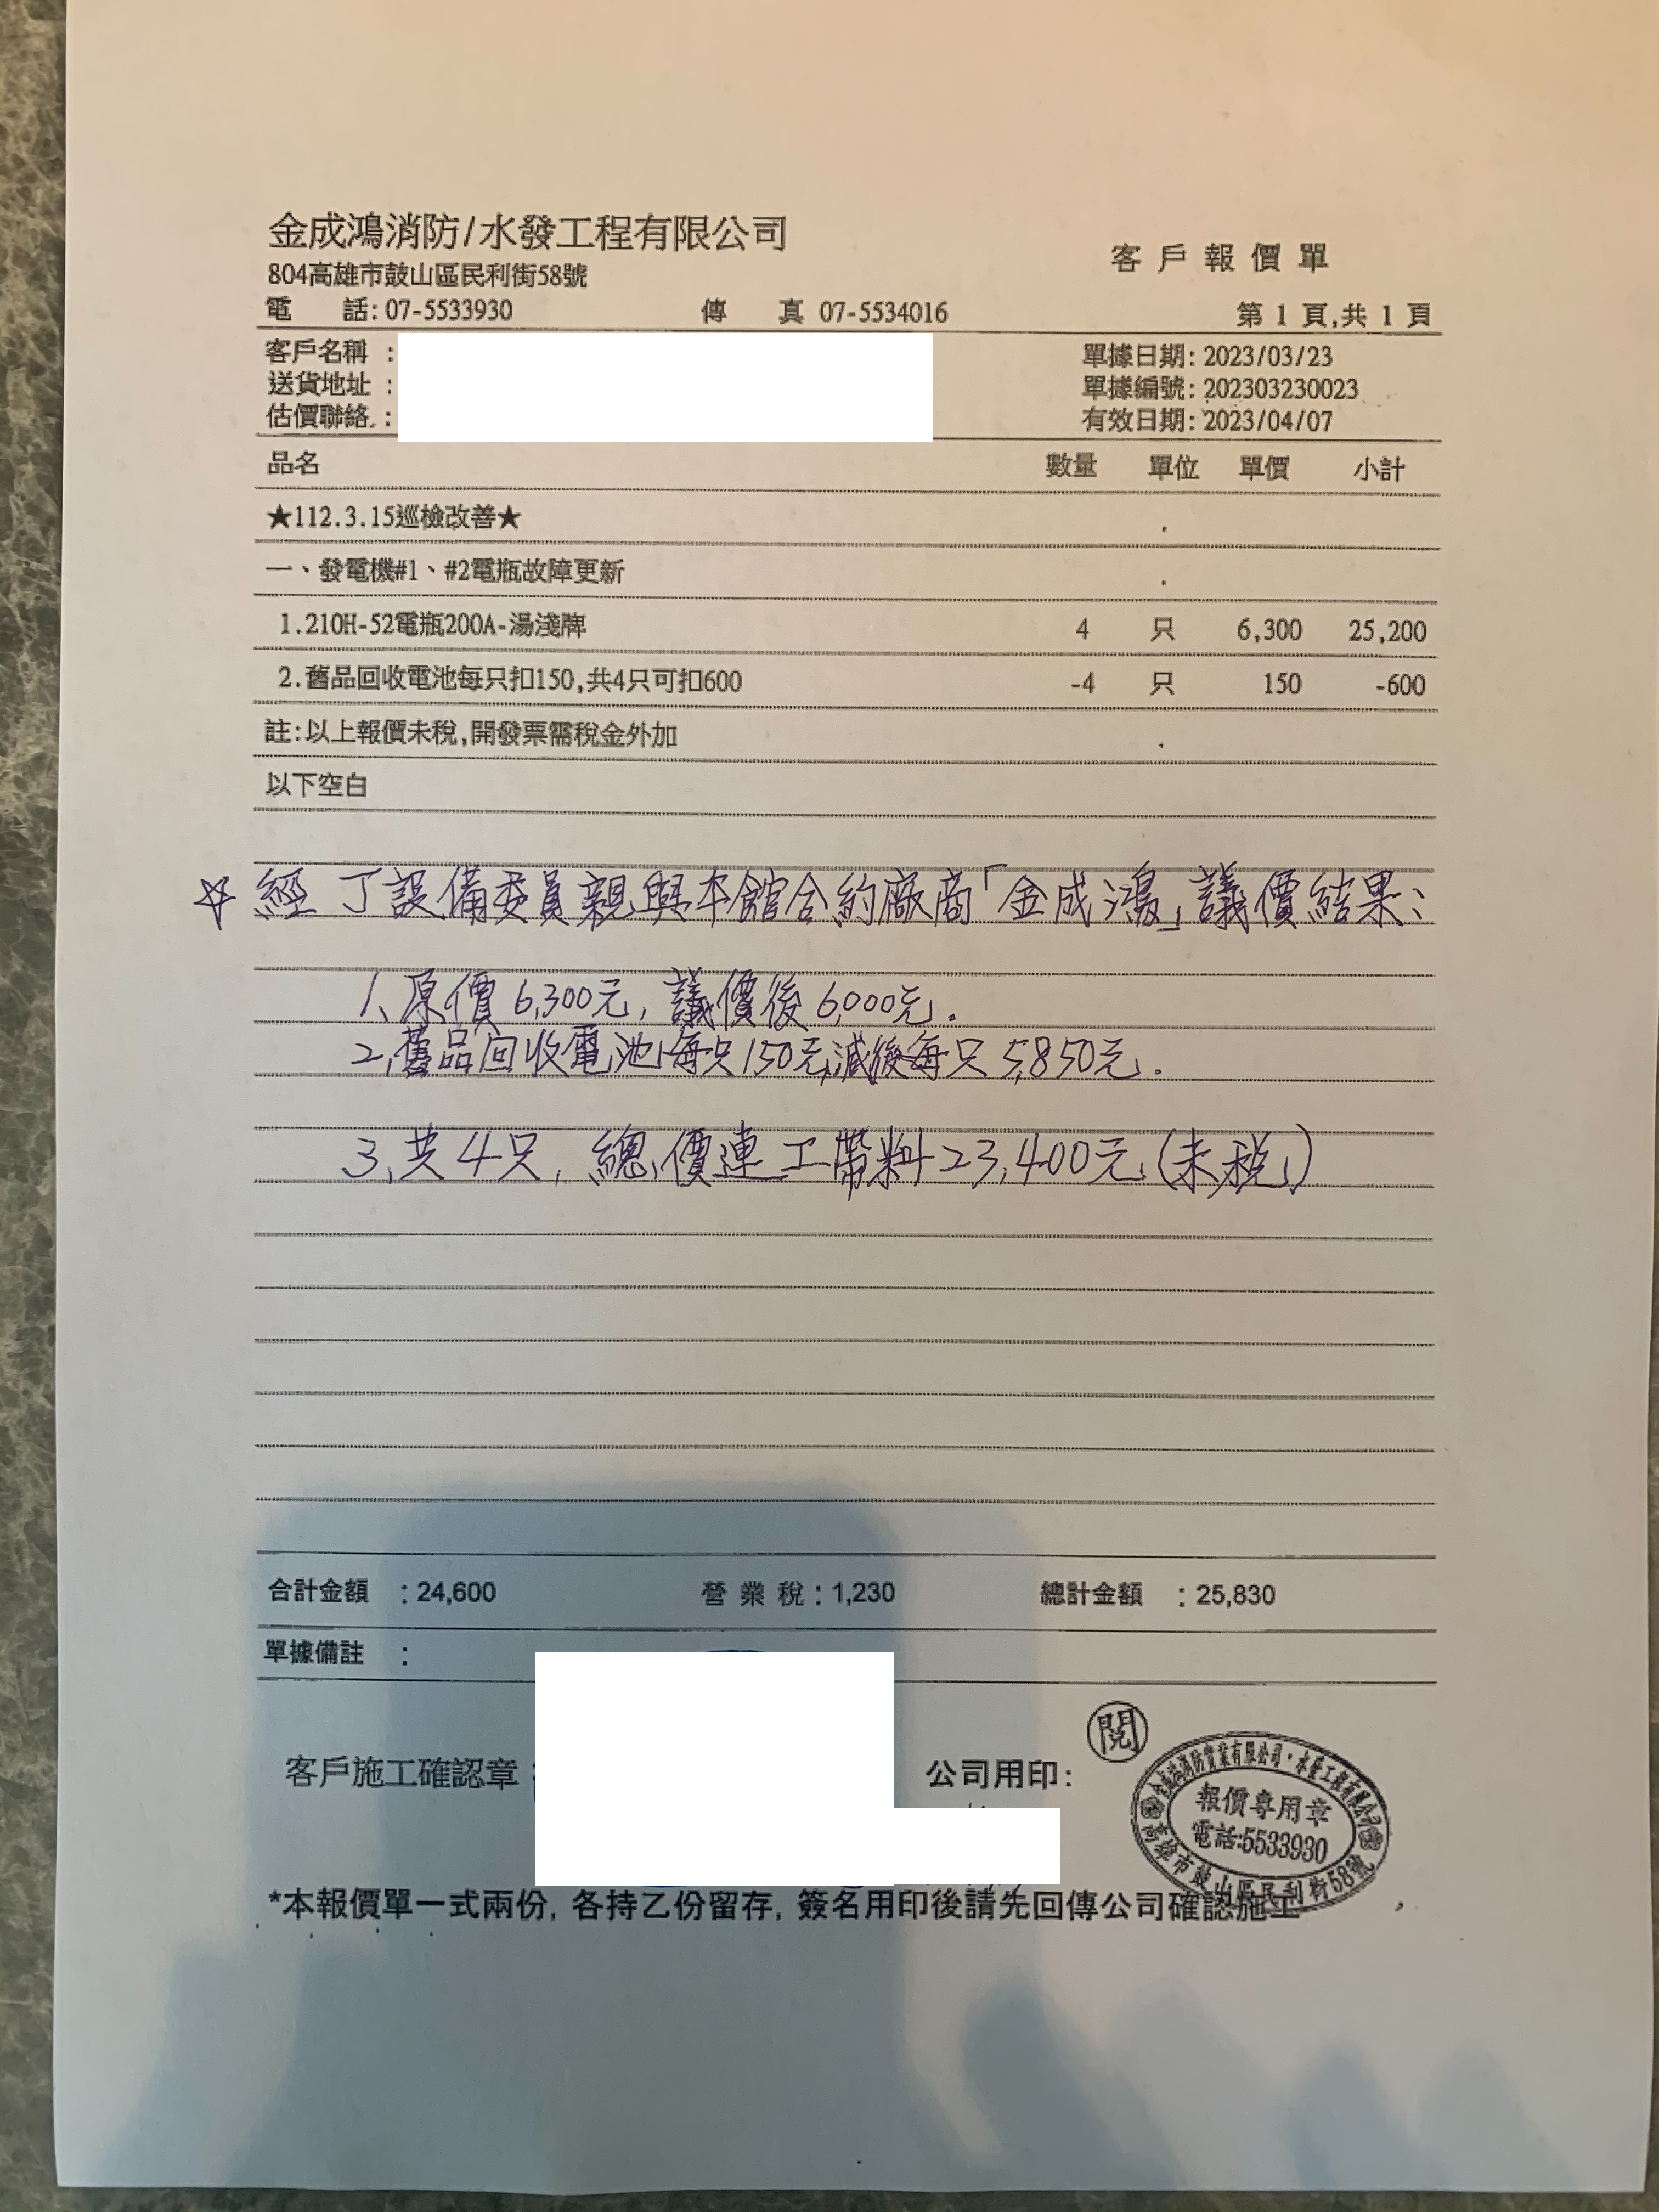 金成鴻消防/水發工程有限公司
客戶報價單
804高雄市鼓山區民利街58號
電 話: 07-5533930 傳 真 07-5534016 第 1 頁,共 1 頁
客戶名稱 : 單據日期: 2023/03/23
送貨地址 : 單據編號: 202303230023
估價聯絡 : 有效日期: 2023/04/07
品名 數量 單位 單價 小計
★112.3.15巡檢改善★
一、發電機#1、#2電瓶故障更新
1.210H-52電瓶200A-湯淺牌 4 只 6,300 25,200
2.舊品回收電池每只扣150,共4只可扣600 -4 只 150 -600
註:以上報價未稅,開發票需稅金外加
以下空白
☆ 經丁設備委員親與本館合約廠商「金成鴻」議價結果:
1、原價6,300元,議價後6,000元.
2、舊品回收電池每只150元減後每只5,850元.
3、共4只,總價連工帶料23,400元(未稅)
合計金額 : 24,600 營 業 稅 : 1,230 總計金額 : 25,830
單據備註 :
客戶施工確認章 : 公司用印:
閱
金成鴻消防實業有限公司・水發工程有限公司
報價專用章
電話:5533930
高雄市鼓山區民利街58號
*本報價單一式兩份, 各持乙份留存, 簽名用印後請先回傳公司確認施工